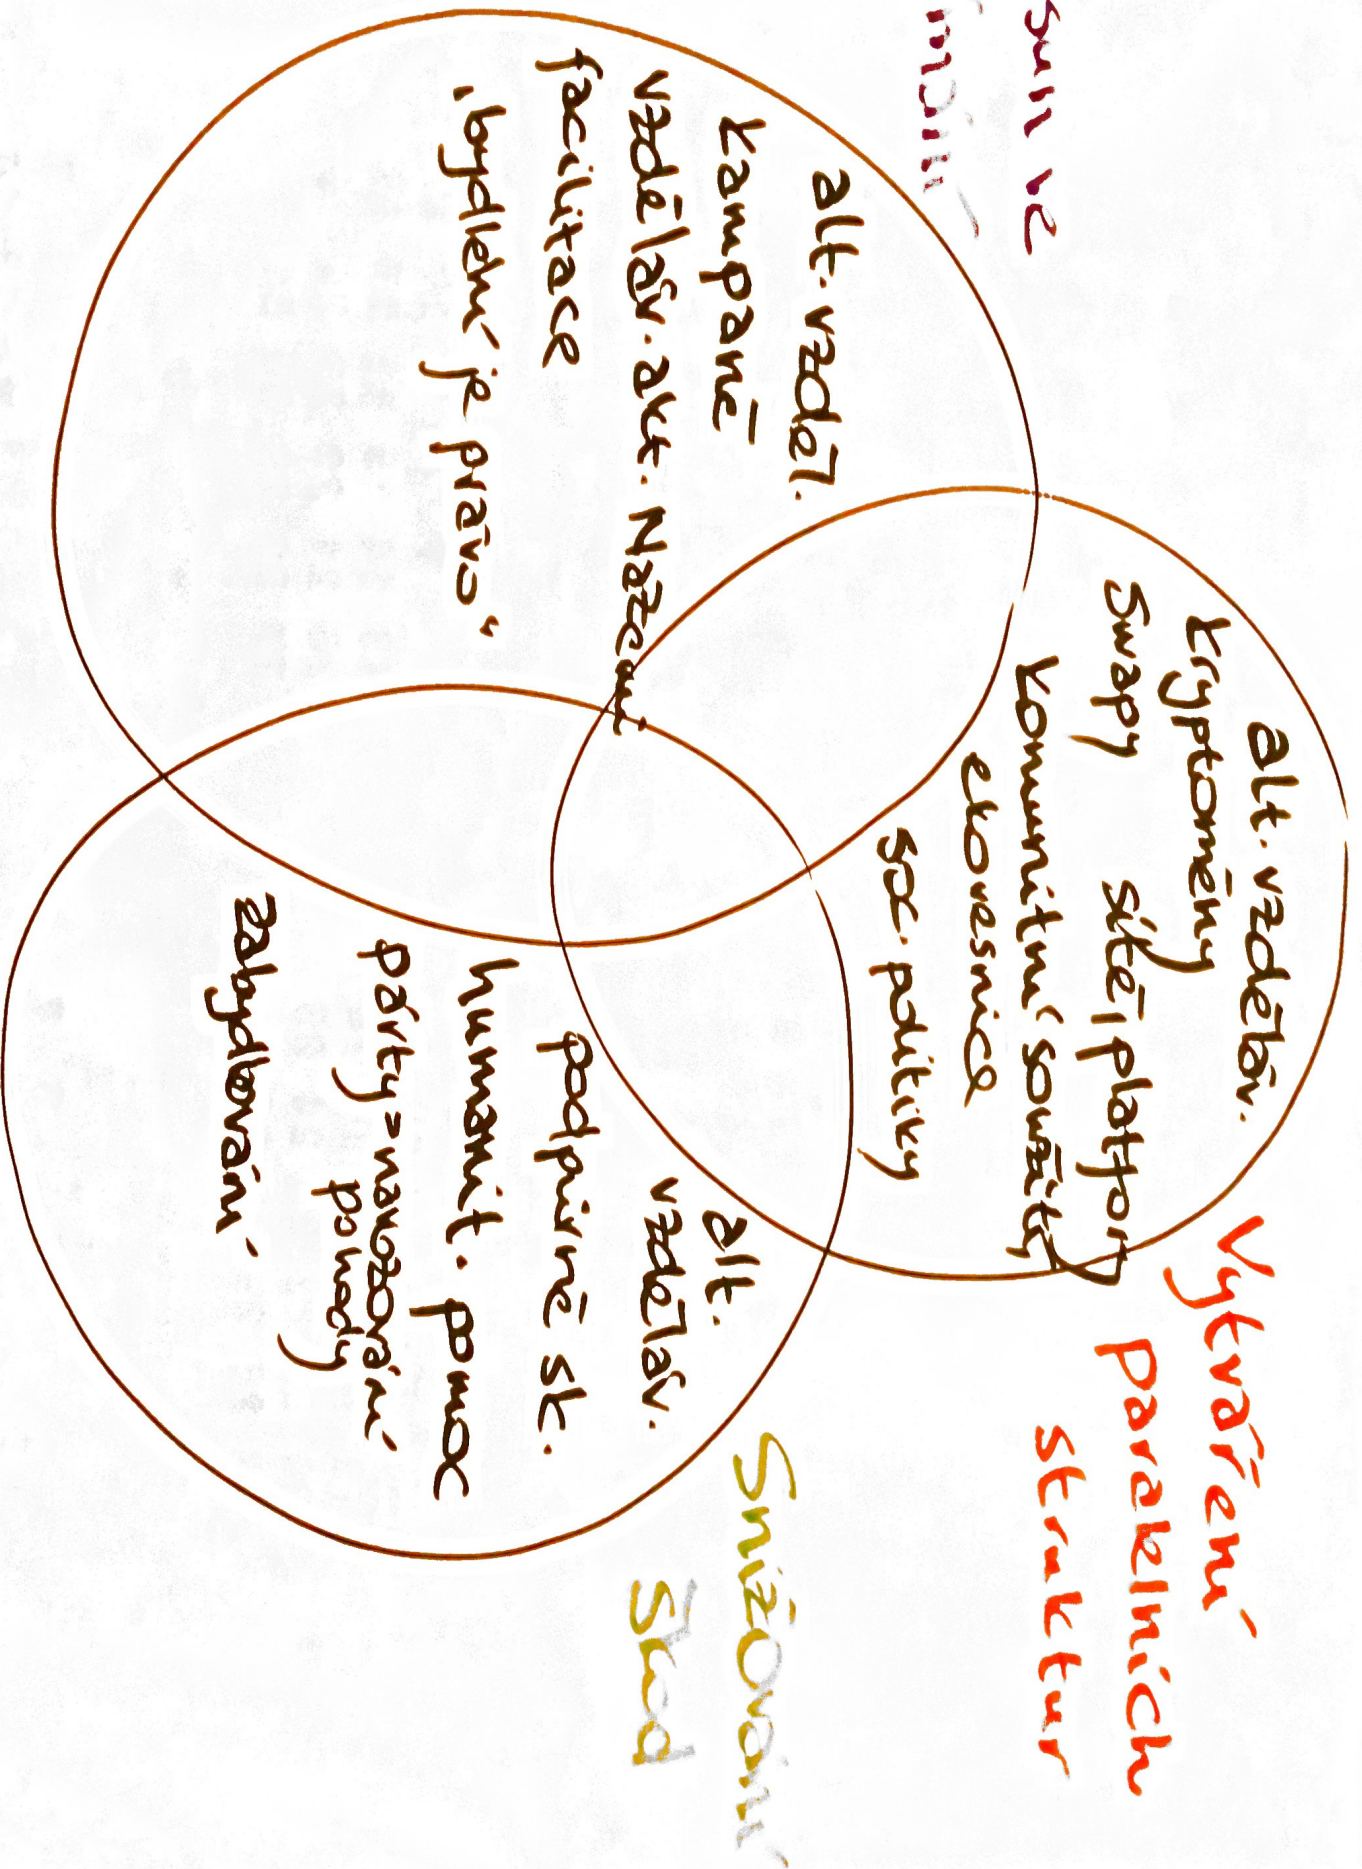 sun ve
alt. vzděl.
kampaně
vzděláv. akt. NaZemi
facilitace
„bydlení je právo“
Vytváření
paralelních
struktur
alt. vzděláv.
kryptoměny
swapy sítě, platfory
komunitní soužití
ekovesnice
soc. politiky
Snižování
škod
alt.
vzděláv.
podpůrné sk.
humanit. pomoc
párty > navozování
pohody
zabydlování